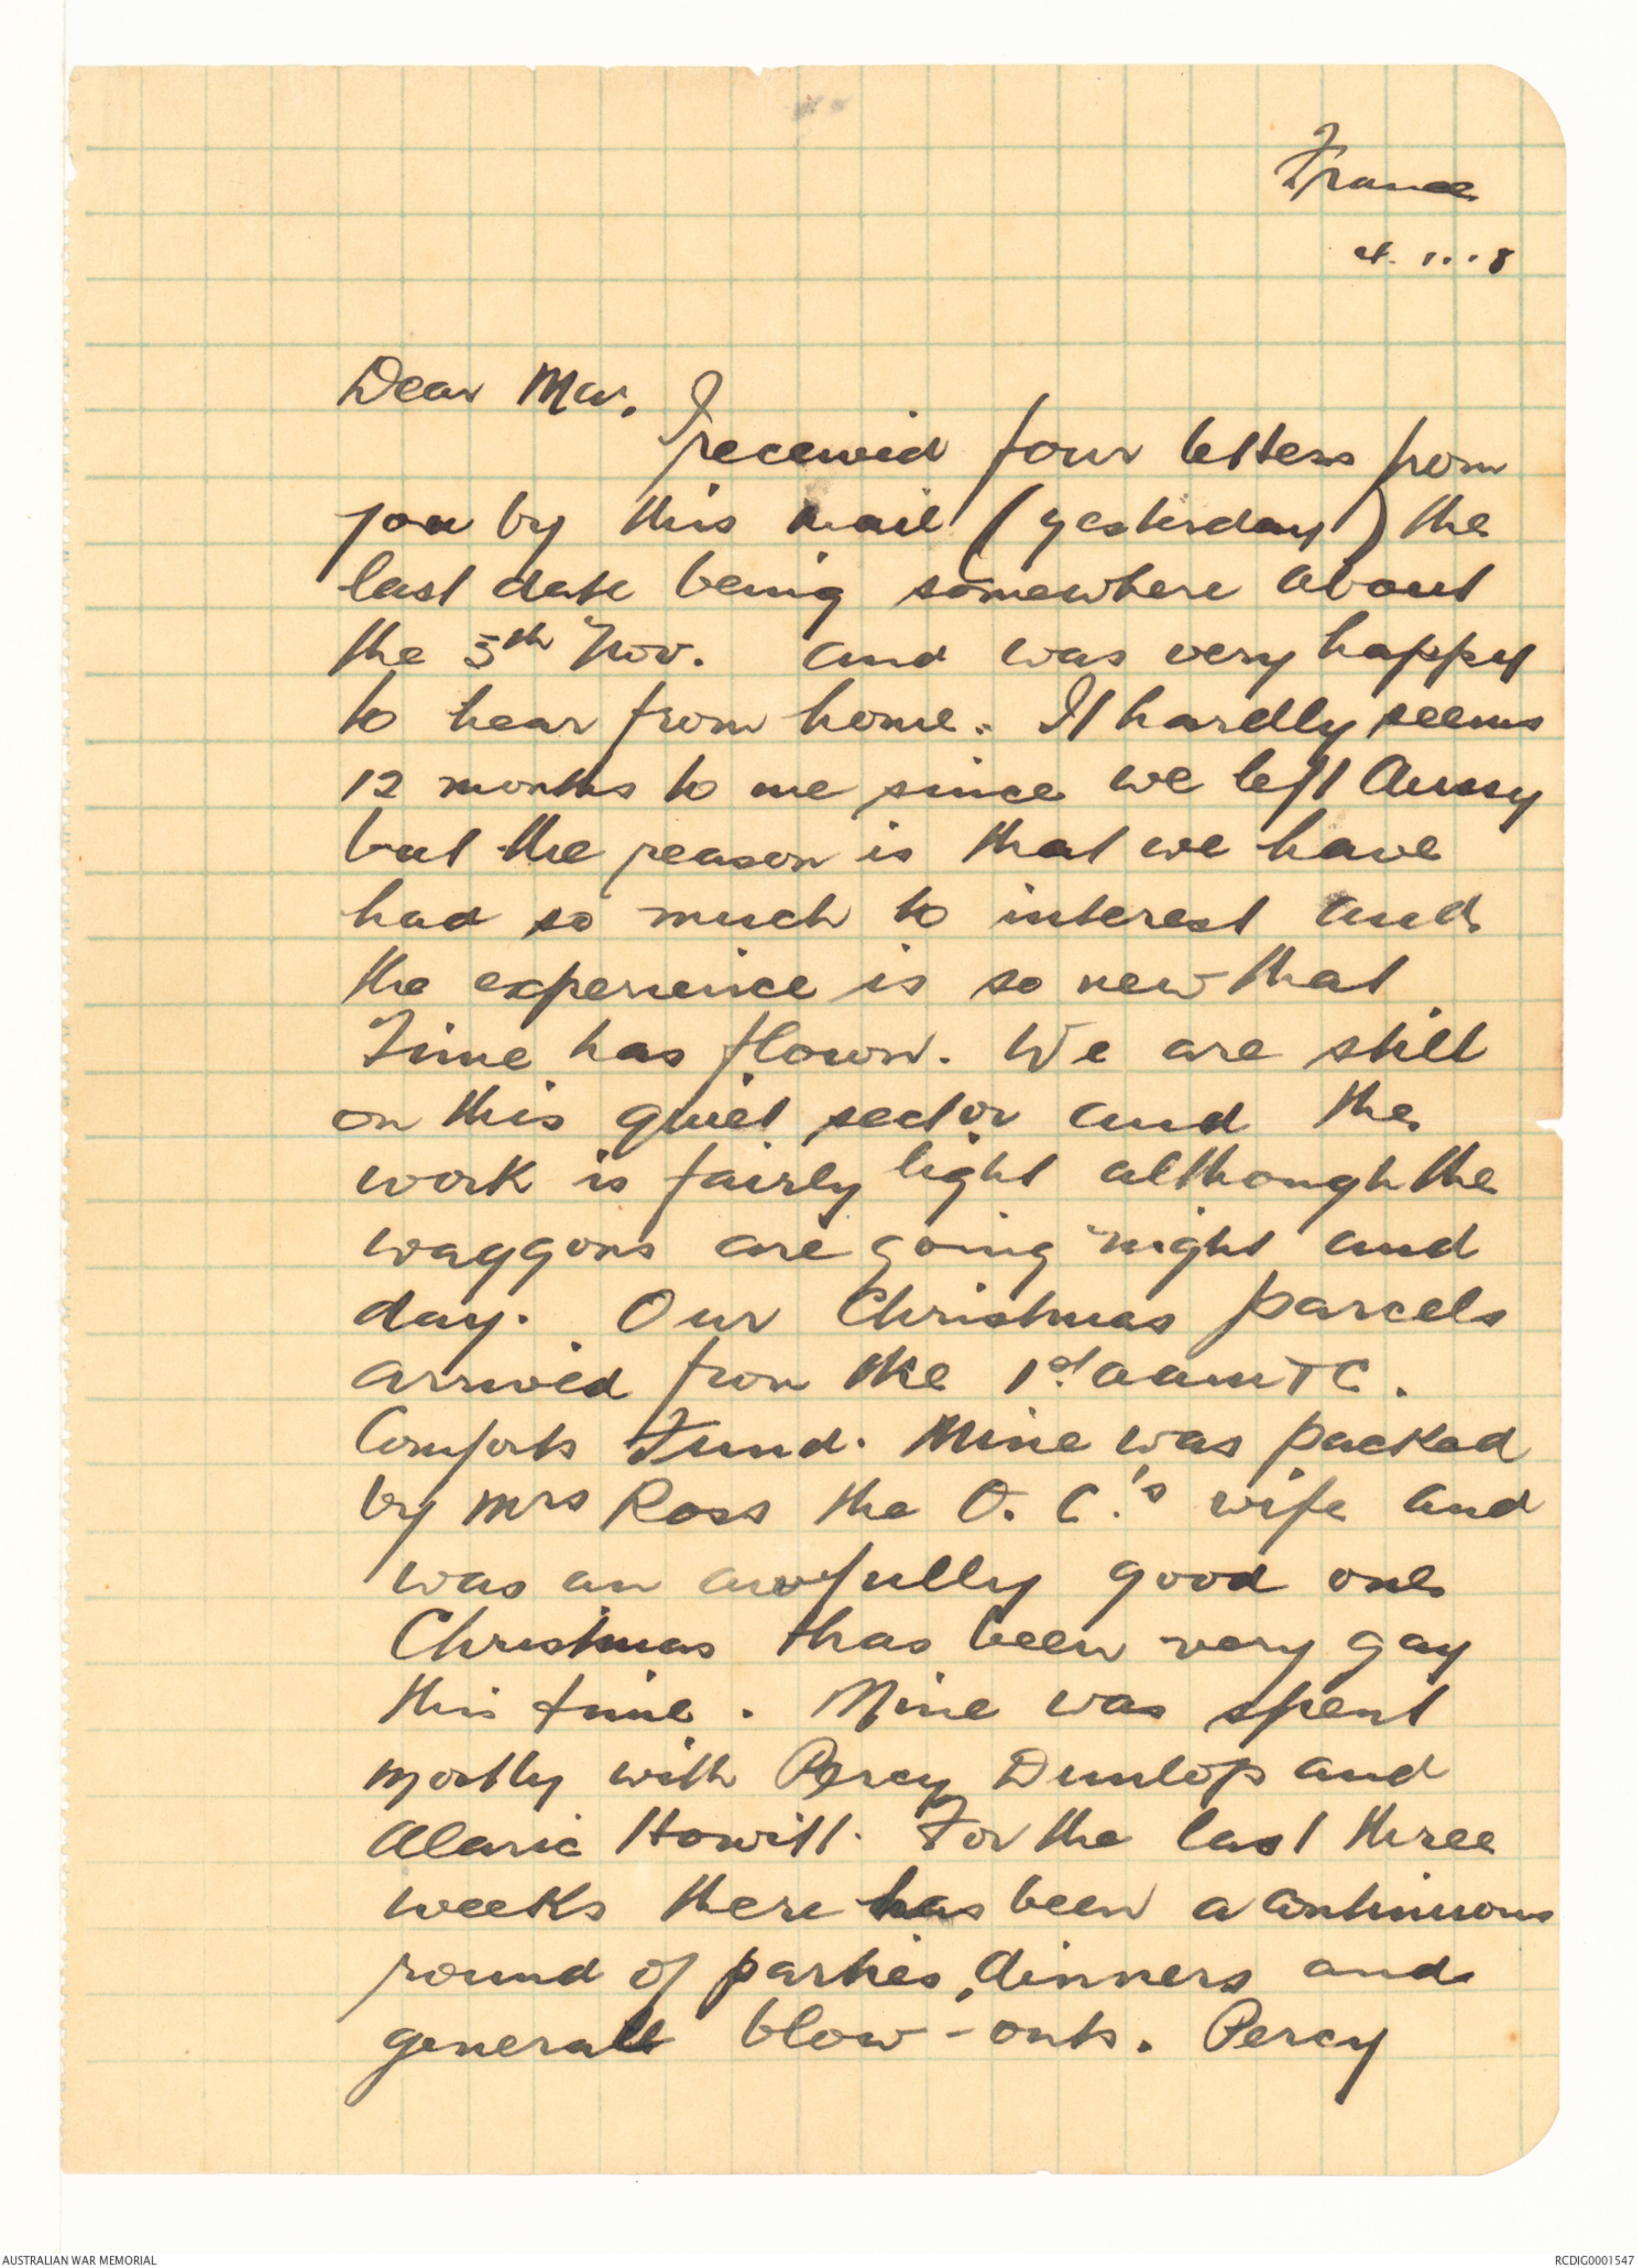 France
4.1.18
Dear Mar,
I received four letters from
you by this mail (yesterday) the
last date being somewhere about
the 5th Nov. and was very happy
to hear from home. It hardly seems
12 months to me since we left Aussy
but the reason is that we have
had so much to interest and
the experience is so new that
Time has flown. We are still
on this quiet sector and the
work is fairly light although the
waggons are going night and
day. Our Christmas parcels
arrived from the 1st AAMTC.
Comforts Fund. Mine was packed
by Mrs Ross the O. C.'s wife and
was an awfully good one
Christmas has been very gay
this time. Mine was spent
mostly with Percy Dunlop and
Alaric Howitt. For the last three
weeks there has been a continuous
round of parties, dinners and
general blow-outs. Percy
AUSTRALIAN WAR MEMORIAL
RCDIG0001547